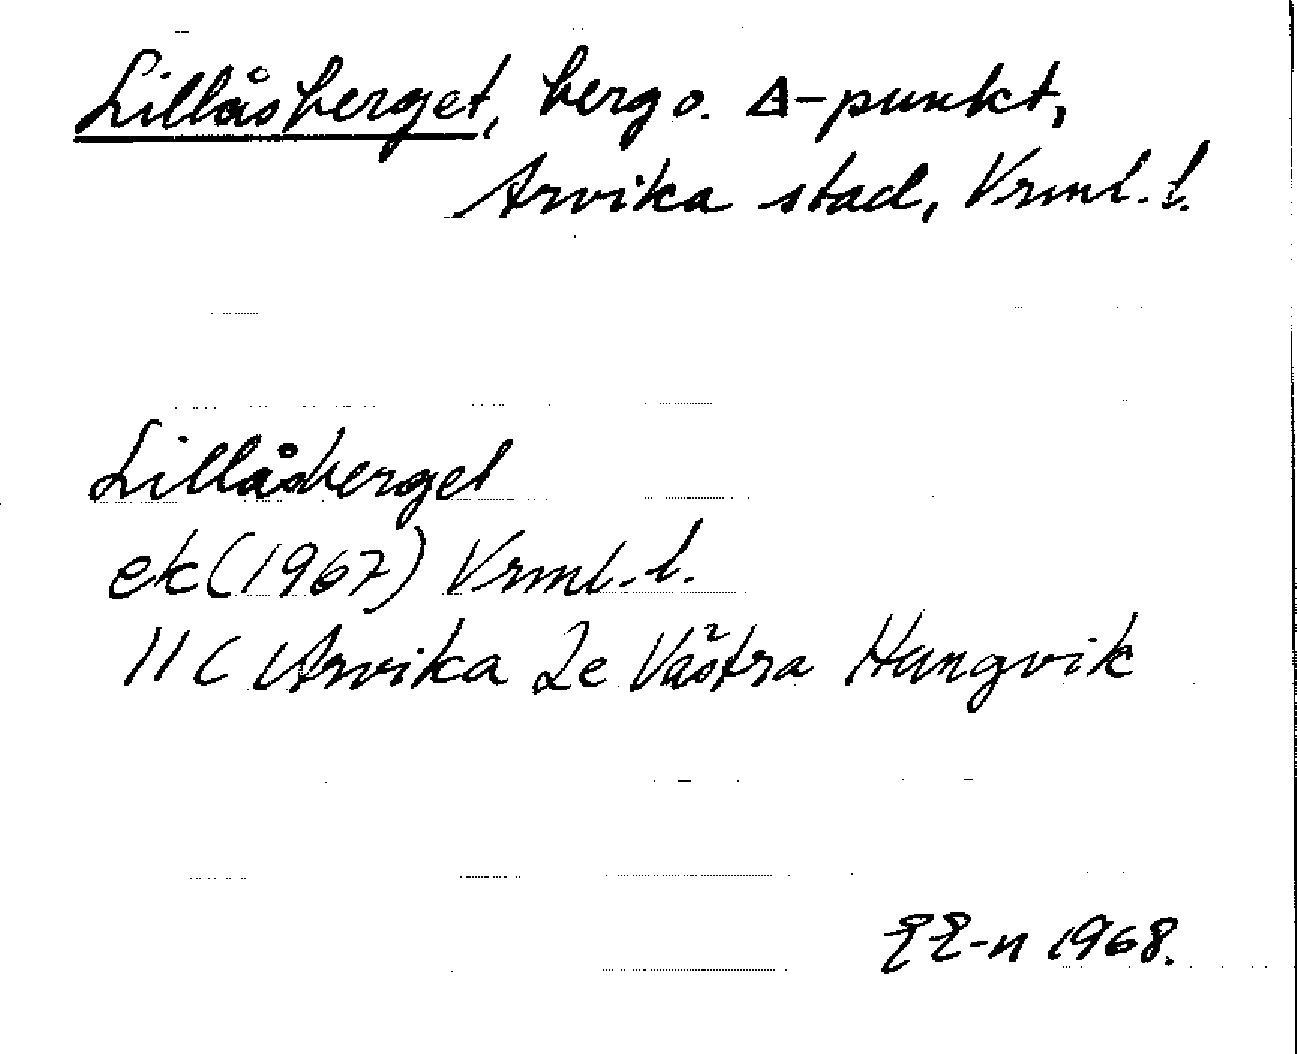 Lillåsberget, berg o. Δ-punkt,
Arvika stad, Vrml. l.
Lillåsberget
ek (1967) Vrml. l.
11 C Arvika 2e Västra Hungvik
EE-n 1968.